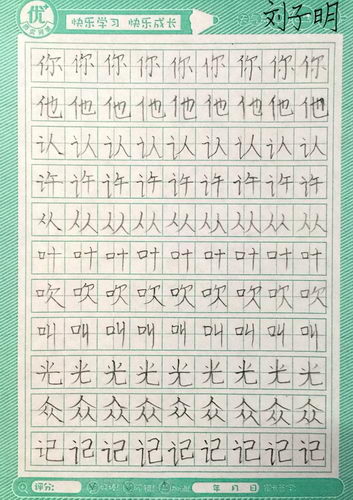 优+ 快乐学习 快乐成长 刘子明
你你你你你你你你你
他他他他他他他他他
认认认认认认认认认
许许许许许许许许许
从从从从从从从从从
叶叶叶叶叶叶叶叶叶
吹吹吹吹吹吹吹吹吹
叫叫叫叫叫叫叫叫叫
光光光光光光光光光
众众众众众众众众众
记记记记记记记记记
评分: 年 月 日